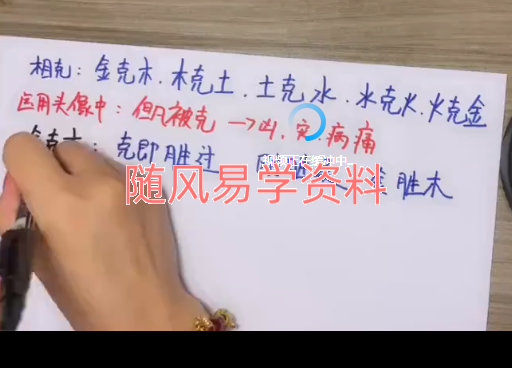 相克：金克木、木克土、土克水、水克火、火克金
运用头像中：但凡被克→凶、灾、病痛
视频正在缓冲中
金克木：克即胜过 胜木
随风易学资料